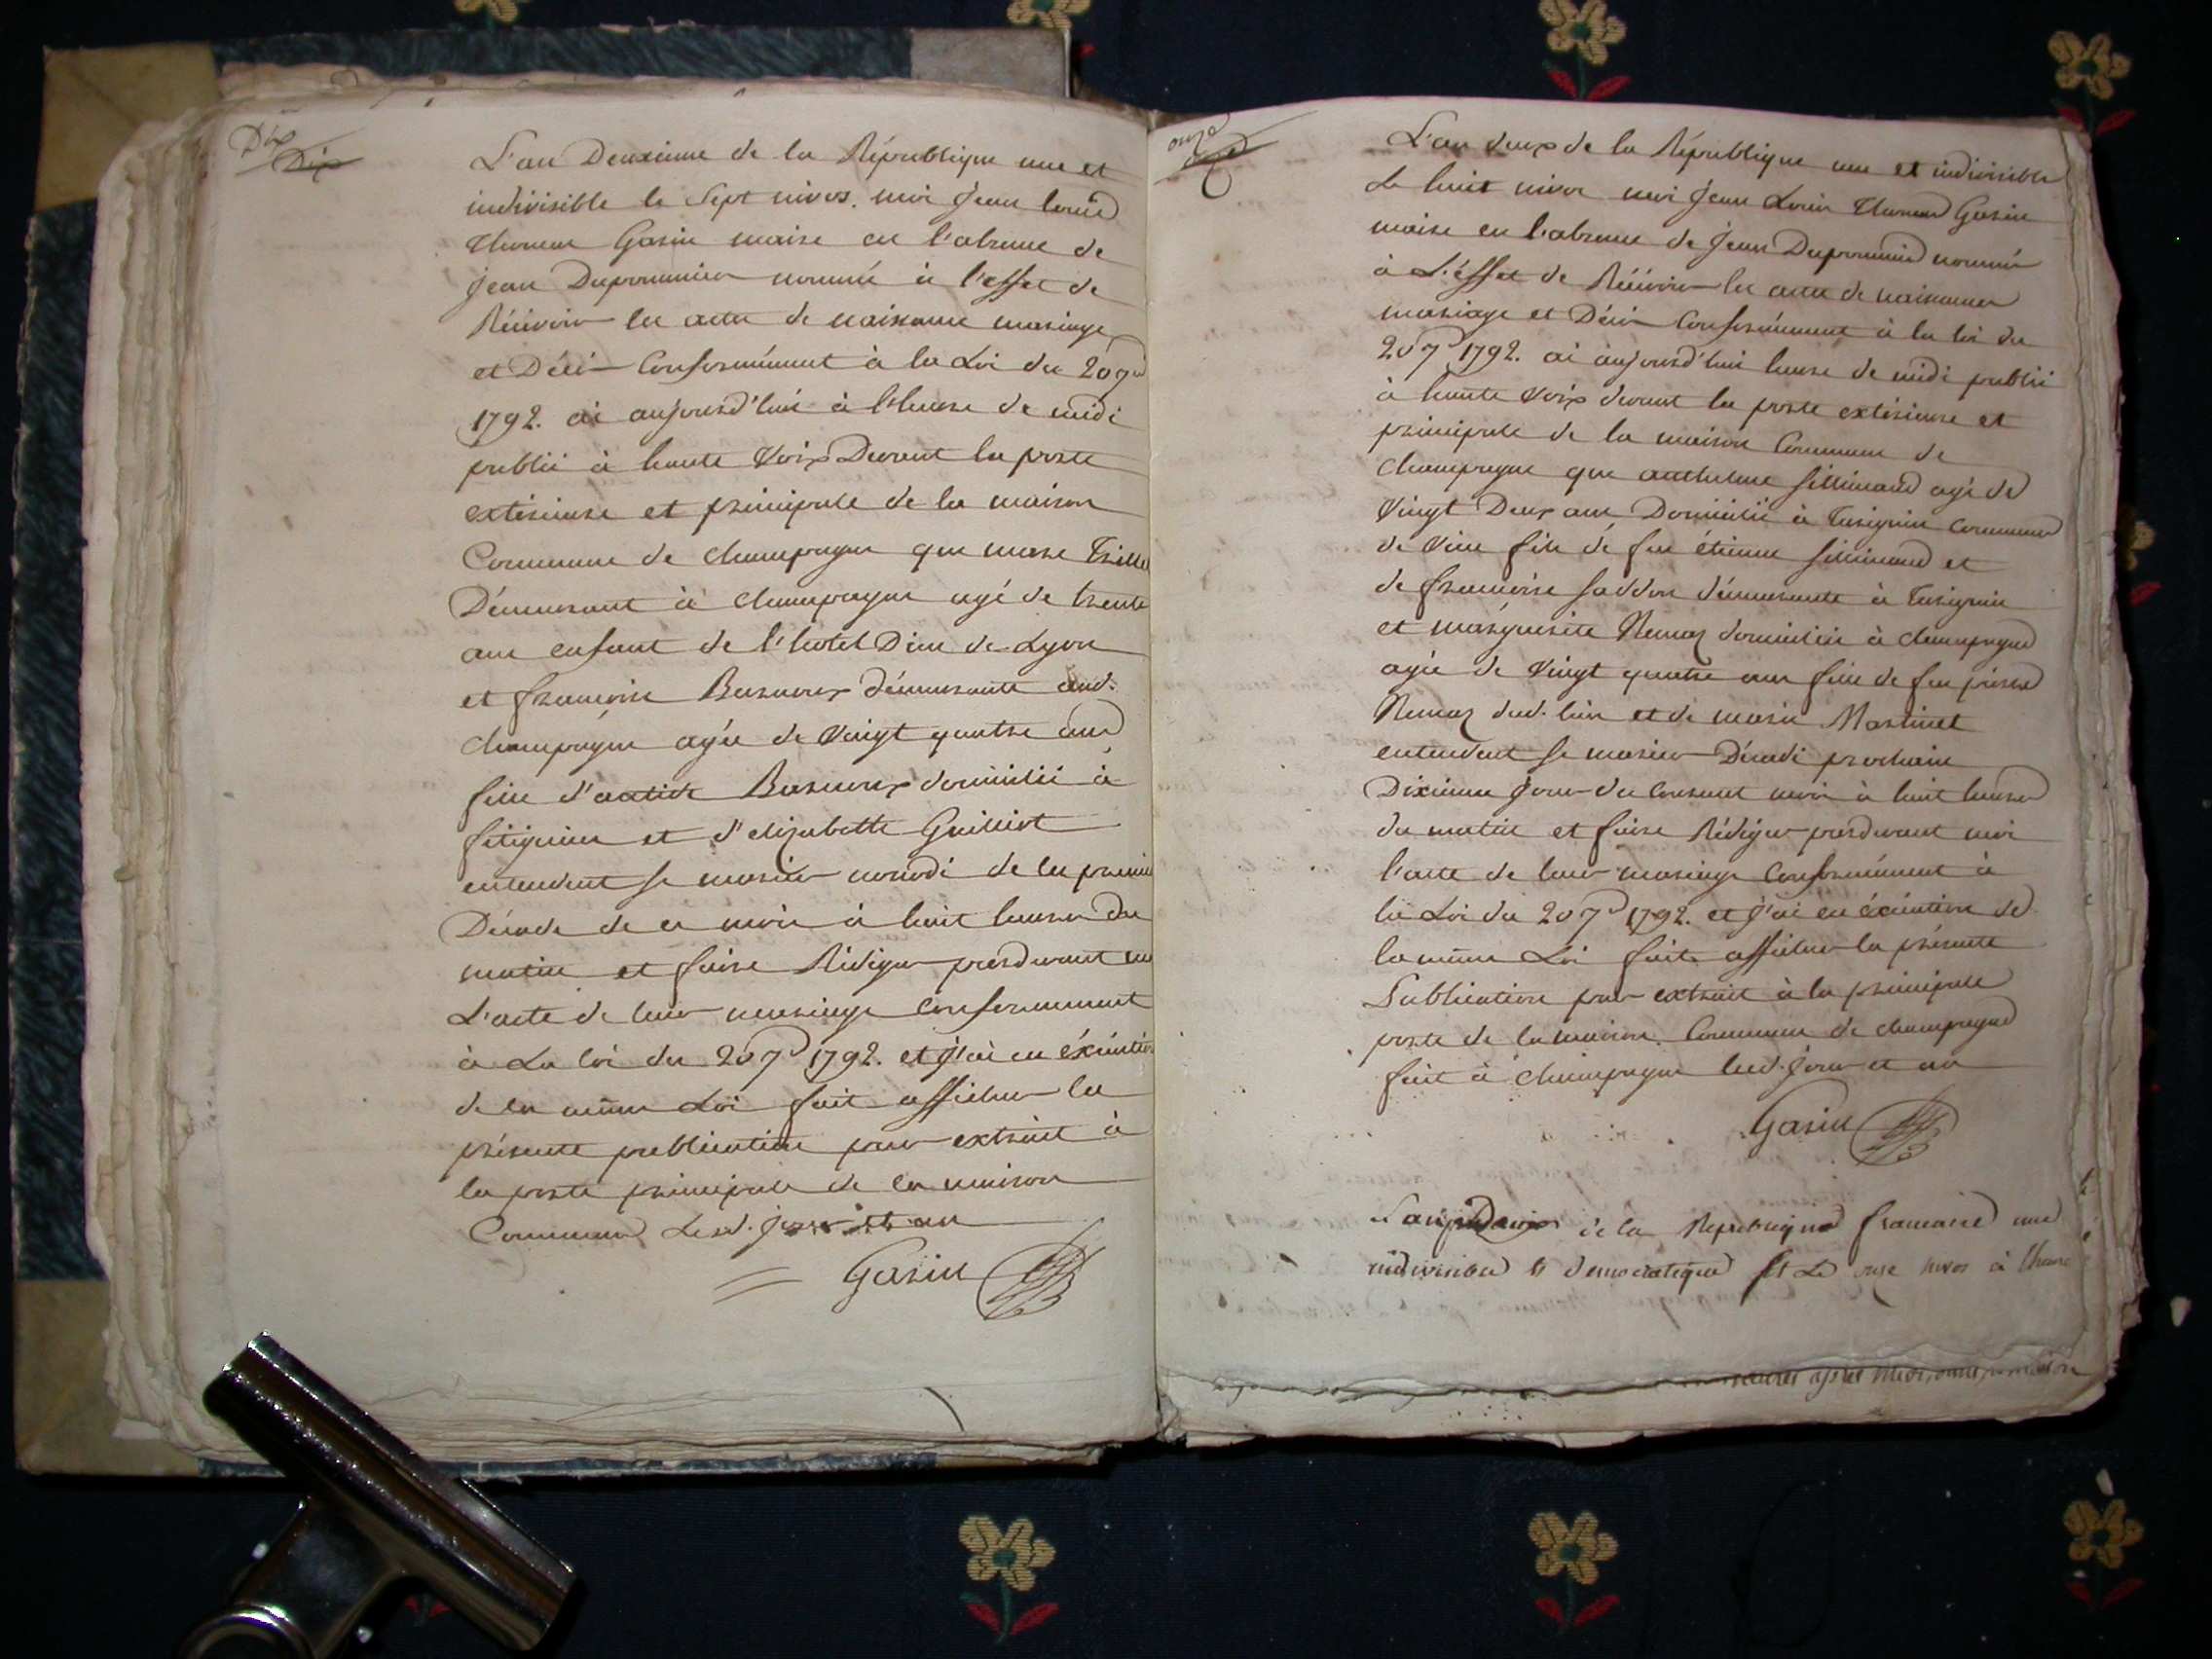 Dix
Dix
L'an Deuxieme de la République une et
indivisible le Sept nivos. moi Jean louis
thomas Gasin maire en l'absence de
Jean Dupommier nommé à l'effet de
Réçévoir les actes de naissance mariage
et Décès Conformément à la Loi du 20 7.
1792. ai aujourd'hui à l'heure de midi
publié à haute Voix Devant la porte
extérieure et principale de la maison
Commune de champagne que marc
Démeurant à champagne agé de trente
ans enfant de l'hotel Dieu de Lyon
et françoise démeurante aud.
champagne agée de Vingt quatre ans
fille d' domicilié à
fitignieu et d'elizabette Guilliot
entendent se marier nonodi de la premie
Décade de ce mois à huit heures du
matin et faire Rédiger pardevant
L'acte de leur mariage Conformement
à La loi du 20 7 1792. et J'ai en éxécution
de la même Loi fait afficher la
présente publication par extrait à
la porte principale de la maison
Commune Lesd. jour et an
Gasin
onze
L'an deux de la République une et indivisible
Le huit nivos moi Jean Louis thomas Gasin
maire en l'absence de Jean Dupommier nommé
à L'éffet de Réçévoir les actes de naissances
mariage et Décès Conformément à la loi du
20 7 1792. ai aujourd'hui heure de midi publié
à haute Voix devant la porte extérieure et
principale de la maison Commune de
champagne que anthelme fillimand agé de
Vingt Deux ans Domicilié à Commune
de Vieu fils dé feu étienne fillimand et
de françoise démeurante à
et marguerite Nemoz domiciliée à champagne
agée de Vingt quatre ans fille de feu pierre
Nemoz dud. lieu et de marie Martinet
entendent se marier Décadi prochain
Dixieme Jour du Courant mois à huit heures
du matin et faire Rédiger pardevant moi
l'acte de leur mariage Conformément à
la Loi du 20 7 1792. et J'ai en éxécution de
la même Loi fait afficher la présente
Publication par extrait à la principale
porte de la maison Commune de champagne
fait à champagne lesd. jour et an
Gasin
L'an de la Republique francaise une
indivisible & democratique et Le onze nivos à l'heure